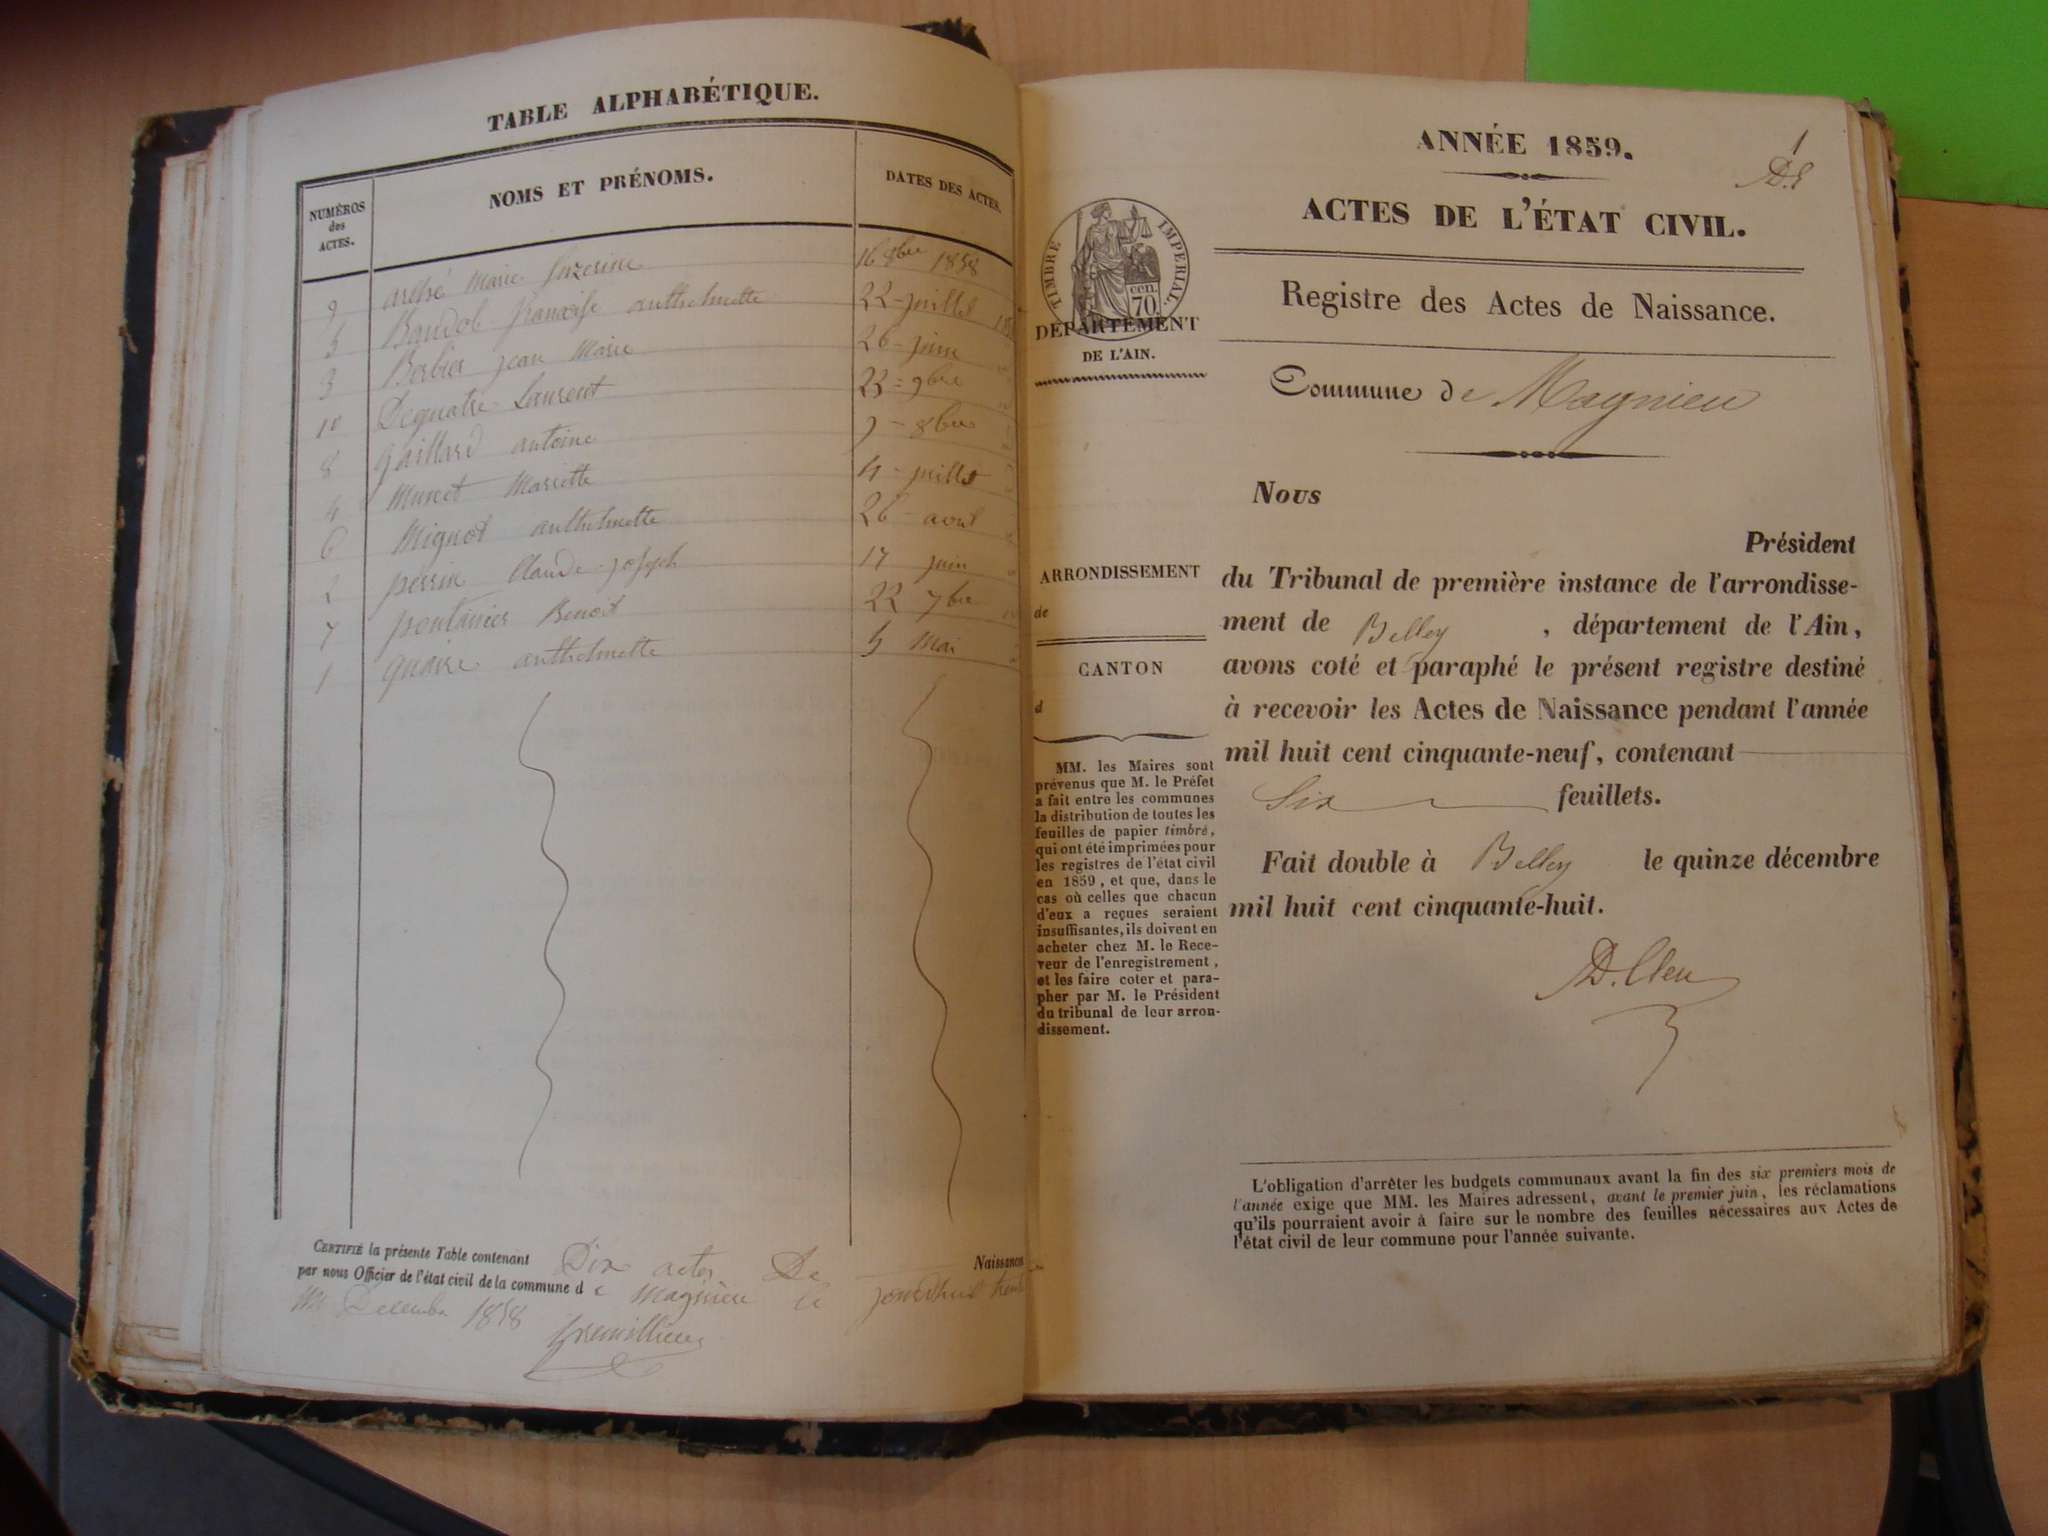 TABLE ALPHABÉTIQUE.
NUMÉROS
des
ACTES.
NOMS ET PRÉNOMS.
DATES DES ACTES.
9 André Marie 16 8bre 1858
5 Françoise anthelmette 22 juillet
3 jean Marie 26 juin
10 Dequatre Laurent 23 = 9bre
8 gaillard antoine 8bre
4 Mariette 4 - juillet
6 Mignot anthelmette 26 - avril
2 perrin Claude joseph 17 juin
7 Benoit 22 7bre
1 anthelmette 5 Mai
CERTIFIÉ la présente Table contenant Dix actes De Naissances
par nous Officier de l'état civil de la commune de Magnieu le jourdhui
Decembre 1858
1
ANNÉE 1859.
ACTES DE L'ÉTAT CIVIL.
TIMBRE IMPÉRIAL.
cen.
70.
DÉPARTEMENT
DE L'AIN.
Registre des Actes de Naissance.
Commune de Magnieu
Nous
Président
ARRONDISSEMENT
de
CANTON
d
du Tribunal de première instance de l'arrondisse-
ment de Belley , département de l'Ain,
avons coté et paraphé le présent registre destiné
à recevoir les Actes de Naissance pendant l'année
mil huit cent cinquante-neuf, contenant
Six feuillets.
Fait double à Belley le quinze décembre
mil huit cent cinquante-huit.
MM. les Maires sont
prévenus que M. le Préfet
a fait entre les communes
la distribution de toutes les
feuilles de papier timbré,
qui ont été imprimées pour
les registres de l'état civil
en 1859, et que, dans le
cas où celles que chacun
d'eux a reçues seraient
insuffisantes, ils doivent en
acheter chez M. le Rece-
veur de l'enregistrement,
et les faire coter et para-
pher par M. le Président
du tribunal de leur arron-
dissement.
L'obligation d'arrêter les budgets communaux avant la fin des six premiers mois de
l'année exige que MM. les Maires adressent, avant le premier juin, les réclamations
qu'ils pourraient avoir à faire sur le nombre des feuilles nécessaires aux Actes de
l'état civil de leur commune pour l'année suivante.